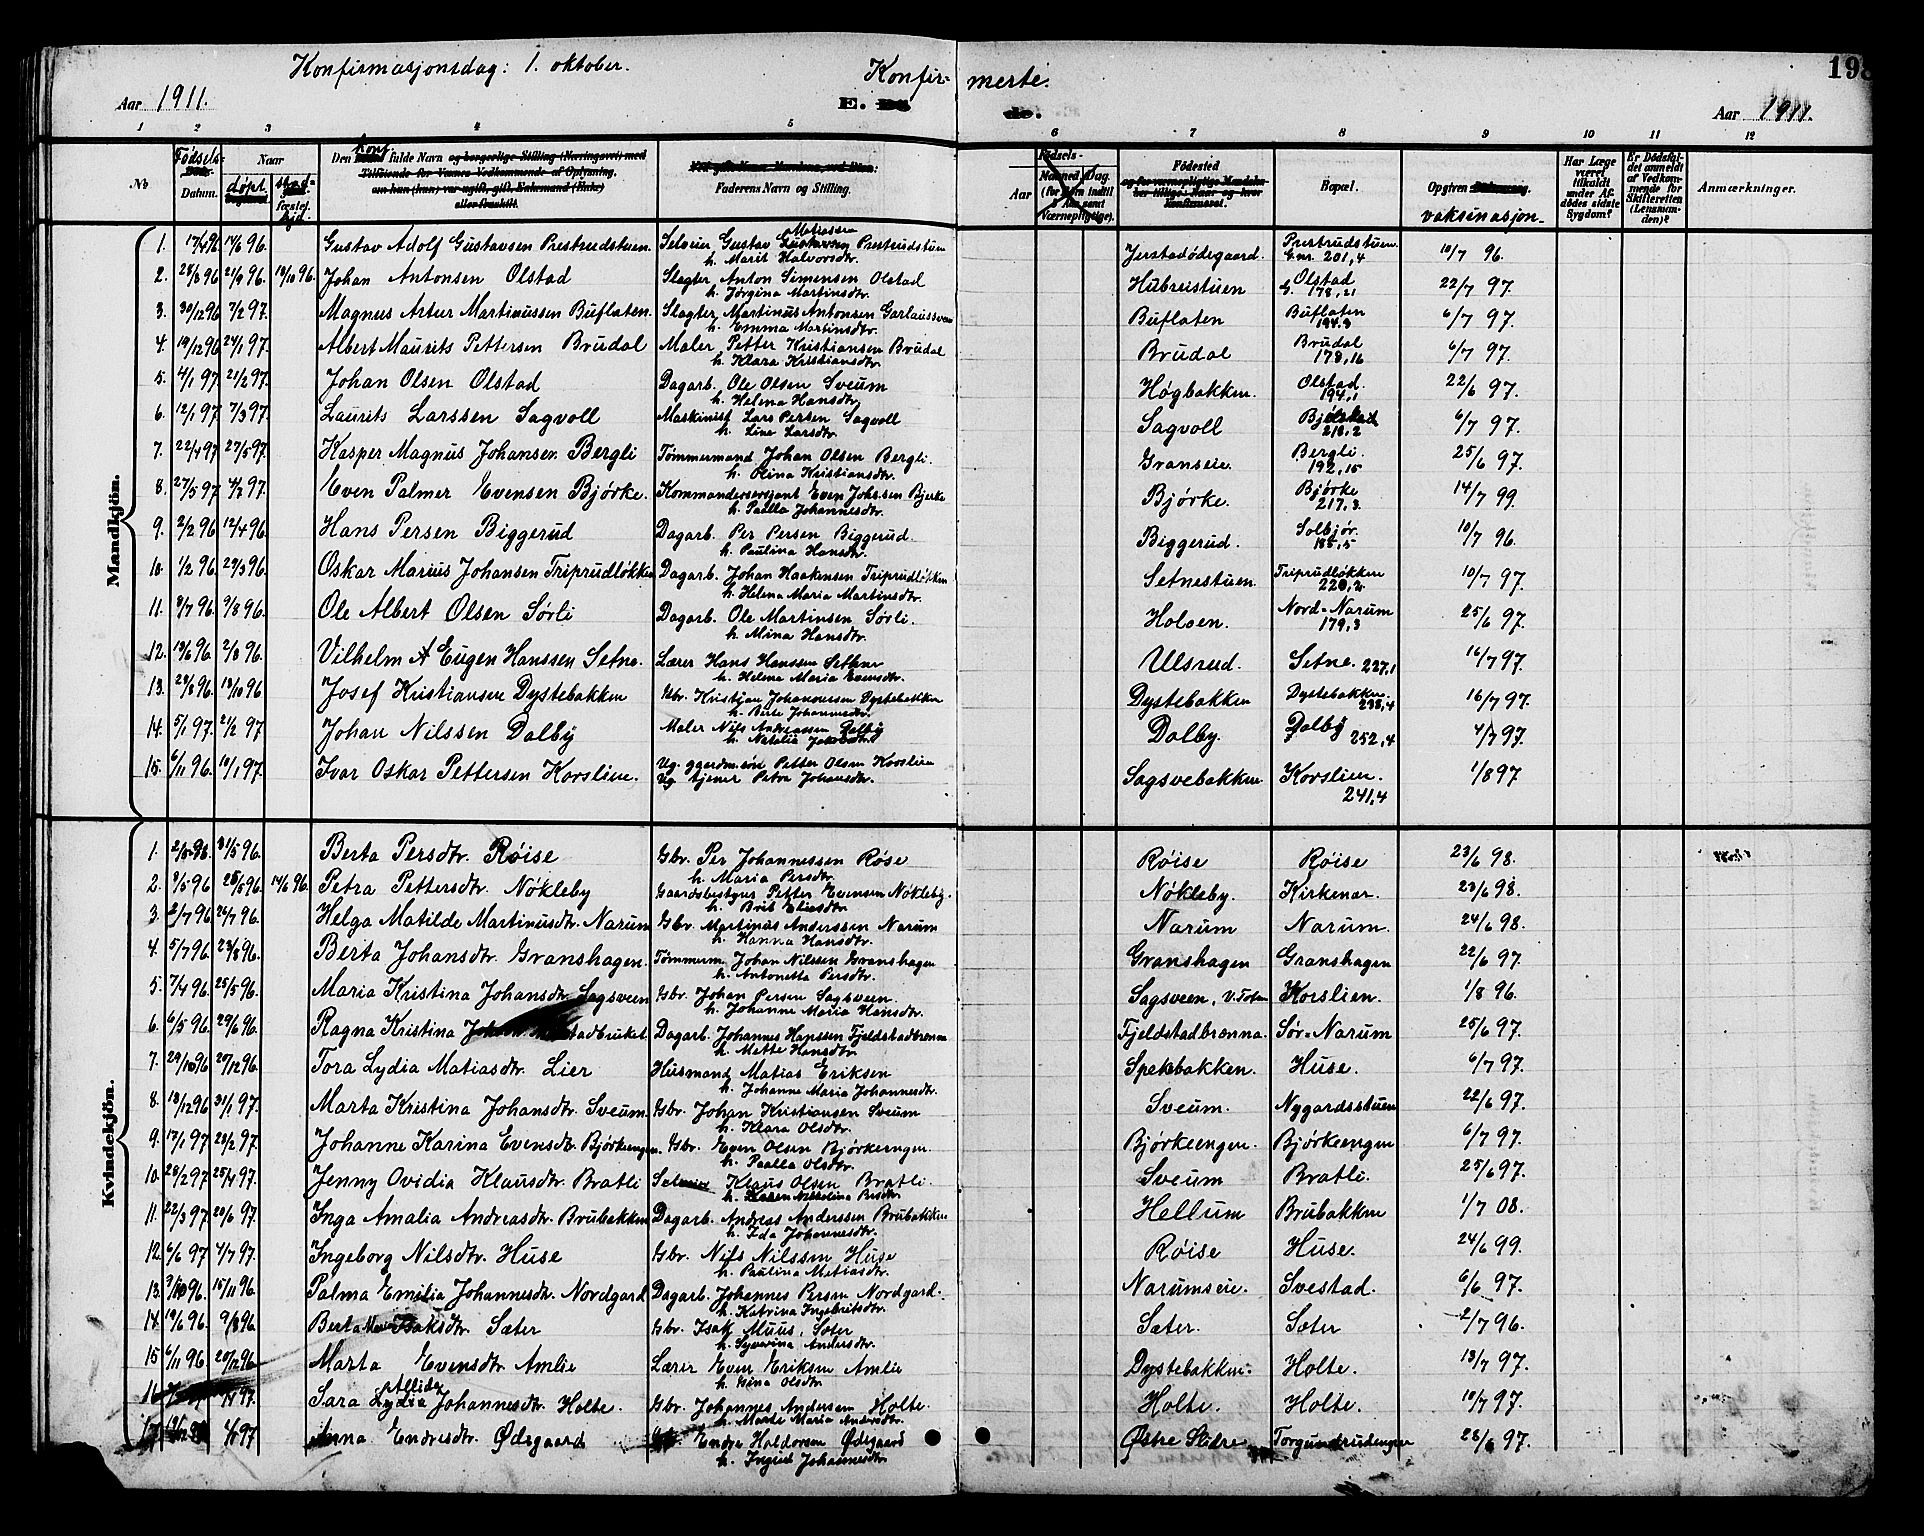 Konfirmasjonsdag: 1. oktober.
Konfir- merte.
198
Aar 1911.
E.
Aar 1911.
1 2 3 4 5 6 7 8 9 10 11 12
No
Fødsels-
Datum.
Naar
døpt.
hjd.
Den konf fulde Navn og borgerlige Stilling (Næringsvei) med
Faderens Navn og Stilling.
Aar
Fødsels-
Maaned, Dag.
(for dem indtil
5 Aar samt
Værnepligtige).
Fødested
Bopæl.
Opgiven
vaksinasjon
Har Læge
været
tilkaldt
under Af-
dødes sidste
Sygdom?
Er Dødsfal-
det anmeldt
af Vedkom-
mende for
Skifteretten
(Lensman-
den)?
Anmærkninger.
Mandkjön.
1. 17/4 96 14/6 96. Gustav Adolf Gustavsen Prestrudstuen. Selveier Gustav Matissen Prestrudstuen Jerstadødegaard. Prestrudstuen. 10/7 96.
h. Marit Halvorsdtr. Gnr. 201,4
2. 28/8 96 21/9 96. 18/10 96. Johan Antonsen Olstad Slagter Anton Simensen Olstad Hubreistuen Olstad 22/7 97.
h. Jørgina Martinsdtr. G. 178,21
3. 30/12 96 7/2 97. Magnus Artur Martinussen Buflaten. Slagter Martinus Antonsen Buflaten Buflaten 6/7 97.
h. Emma Martinsdtr. 194.3
4. 19/12 96 24/1 97. Albert Maurits Pettersen Brudal Maler Petter Kristiansen Brudal Brudal Brudal 6/7 97.
h. Klara Kristiansdtr. 178,16
5. 4/1 97 21/2 97. Johan Olsen Olstad Dagarb. Ole Olsen Sveum Høgbakken. Olstad. 22/6 97.
h. Helena Hansdtr. 194,1
6. 12/1 97. 7/3 97. Laurits Larssen Sagvoll Maskinist Lars Persen Sagvoll Sagvoll 6/7 97.
h. Line Larsdtr. 218,2
7. 22/4 97 27/5 97. Kasper Magnus Johansen Bergli Tømmermand Johan Olsen Bergli. Granseie. Bergli. 25/6 97.
h. Olina Kristiansdtr. 192,15
8. 27/5 97 4/7 97. Even Palmer Evensen Bjørke. Kommandersersjant Even Johssen Bjerke Bjørke. Bjørke 14/7 99.
h. Paulla Johannesdtr. 217,3.
9. 2/2 96 12/4 96. Hans Persen Biggerud Dagarb. Per Persen Biggerud. Biggerud. Solbjør. 10/7 96.
h. Paulina Hansdtr. 185,5
10. 1/2 96. 29/3 96. Oskar Marius Johansen Triprudløkken Dagarb. Johan Haakensen Triprudløkken Setnestuen. Triprudløkken 10/7 97.
h. Helena Maria Martinsdtr. 220,2
11. 8/7 96. 9/8 96. Ole Albert Olsen Sørli Dagarb. Ole Martinsen Sørli. Holoen. Nord-Narum 25/6 97.
h. Mina Hansdtr. 179,3
12. 13/6 96. 2/8 96. Vilhelm Eugen Hanssen Setne. Lærer Hans Hanssen Setne Ulsrud. Setne. 227,1 16/7 97.
h. Helene Maria Evensdtr.
13. 23/8 96. 18/10 96 Josef Kristiansen Dystebakken Gbr. Kristjan Johannessen Dystebakken Dystebakken Dystebakken. 16/7 97.
h. Berte Johannesdtr. 238,4
14. 5/1 97. 21/2 97 Johan Nilssen Dalby Maler Nils Andreassen Dalby Dalby. Dalby 252,4 4/7 97.
h. Natalia Jakobsdtr.
15. 6/11 96. 10/1 97. Ivar Oskar Pettersen Korslien. Ug. ggerdm.søn Petter Olsen Korslien Sagsvebakken Korslien. 1/8 97
Ug tjener Petra Johansdtr. 241,4
Kvindekjön.
1. 31/5 96. Berta Persdtr. Røise Gbr. Per Johannessen Røse Røise Røise 23/6 98.
h. Maria Persdtr.
2. 9/5 96 25/5 96. 14/6 96. Petra Pettersdtr. Nøkleby Gaardsbestyrer Petter Evensen Nøkleby. Nøkleby. Kirkenær. 23/6 98.
h. Brit Eliasdtr.
3. 2/7 96 26/7 96. Helga Matilde Martinusdtr. Narum Gbr. Martinus Anderssen Narum Narum Narum. 24/6 98.
h. Hanna Hansdtr.
4. 5/7 96. 23/8 96. Berta Johansdtr. Granshagen. Tømmerm. Johan Nilssen Granshagen Granshagen Granshagen 22/6 97.
h. Antonetta Persdtr.
5. 7/4 96. 25/5 96. Maria Kristina Johansdtr. Sagsveen Gbr. Johan Persen Sagsveen. Sagsveen, V. Toten Korslien. 1/8 96.
h. Johanne Maria Hansdtr.
6. 6/5 96. 29/6 96. Ragna Kristina Dagarb. Johannes Hanssen Fjeldstadbrenna Fjeldstadbrenna. Sør-Narum 25/6 97.
h. Mette Hansdtr.
7. 29/10 96 20/12 96. Tora Lydia Matiasdtr. Lier Husmand Matias Eriksen Spekebakken. Huse. 6/7 97.
h. Johanne Maria Johannesdtr.
8. 18/12 96 31/1 97. Marta Kristina Johansdtr. Sveum. Gbr. Johan Kristiansen Sveum Sveum. Nygardsstuen 22/6 97.
h. Klara Olsdtr.
9. 17/1 97 28/2 97. Johanne Karina Evensdtr. Bjørkeengen. Gbr. Even Olsen Bjørkeengen Bjørkeengen. Bjørkeengen 6/7 97.
h. Paulla Olsdtr.
10. 28/2 97 25/4 97. Jenny Ovidia Klausdtr. Bratli Klaus Olsen Bratli. Sveum Bratli. 25/6 97.
11. 22/3 97 20/6 97. Inga Amalia Andreasdtr. Brubakken Dagarb. Andreas Anderssen Brubakken Hellum Brubakken 1/7 08.
h. Ida Johannesdtr.
12. 6/6 97 4/7 97. Ingeborg Nilsdtr. Huse Gbr. Nils Nilssen Huse Røise Huse. 24/6 99.
h. Paulina Matiasdtr.
13. 9/10 96. 15/11 96. Palma Emilia Johannesdtr. Nordgard Dagarb. Johannes Persen Nordgard. Narumseie. Svestad. 6/6 97.
h. Katrina Ingebritsdtr.
14. 19/6 96. 9/8 96. Berta Isaksdtr. Sæter Gbr. Isak Muus, Sæter Sæter. Sæter 2/7 96.
h. Syverina Andersdtr.
15 6/11 96 20/12 96. Marta Evensdtr. Amlie Lærer Even Eriksen Amlie Dystebakken. Holte. 13/7 97.
h. Gina Olsdtr.
16. Sara Lydia Johannesdtr. Holte. Gbr. Johannes Andersen Holte. Holte. Holte. 10/7 97.
h. Marte Maria Andersdtr.
17. Anna Endresdtr. Ødegaard Endre Haldorsen Ødegaard Østre Slidre Torgundrudengen 28/6 97.
h. Ingrid Johannesdtr.